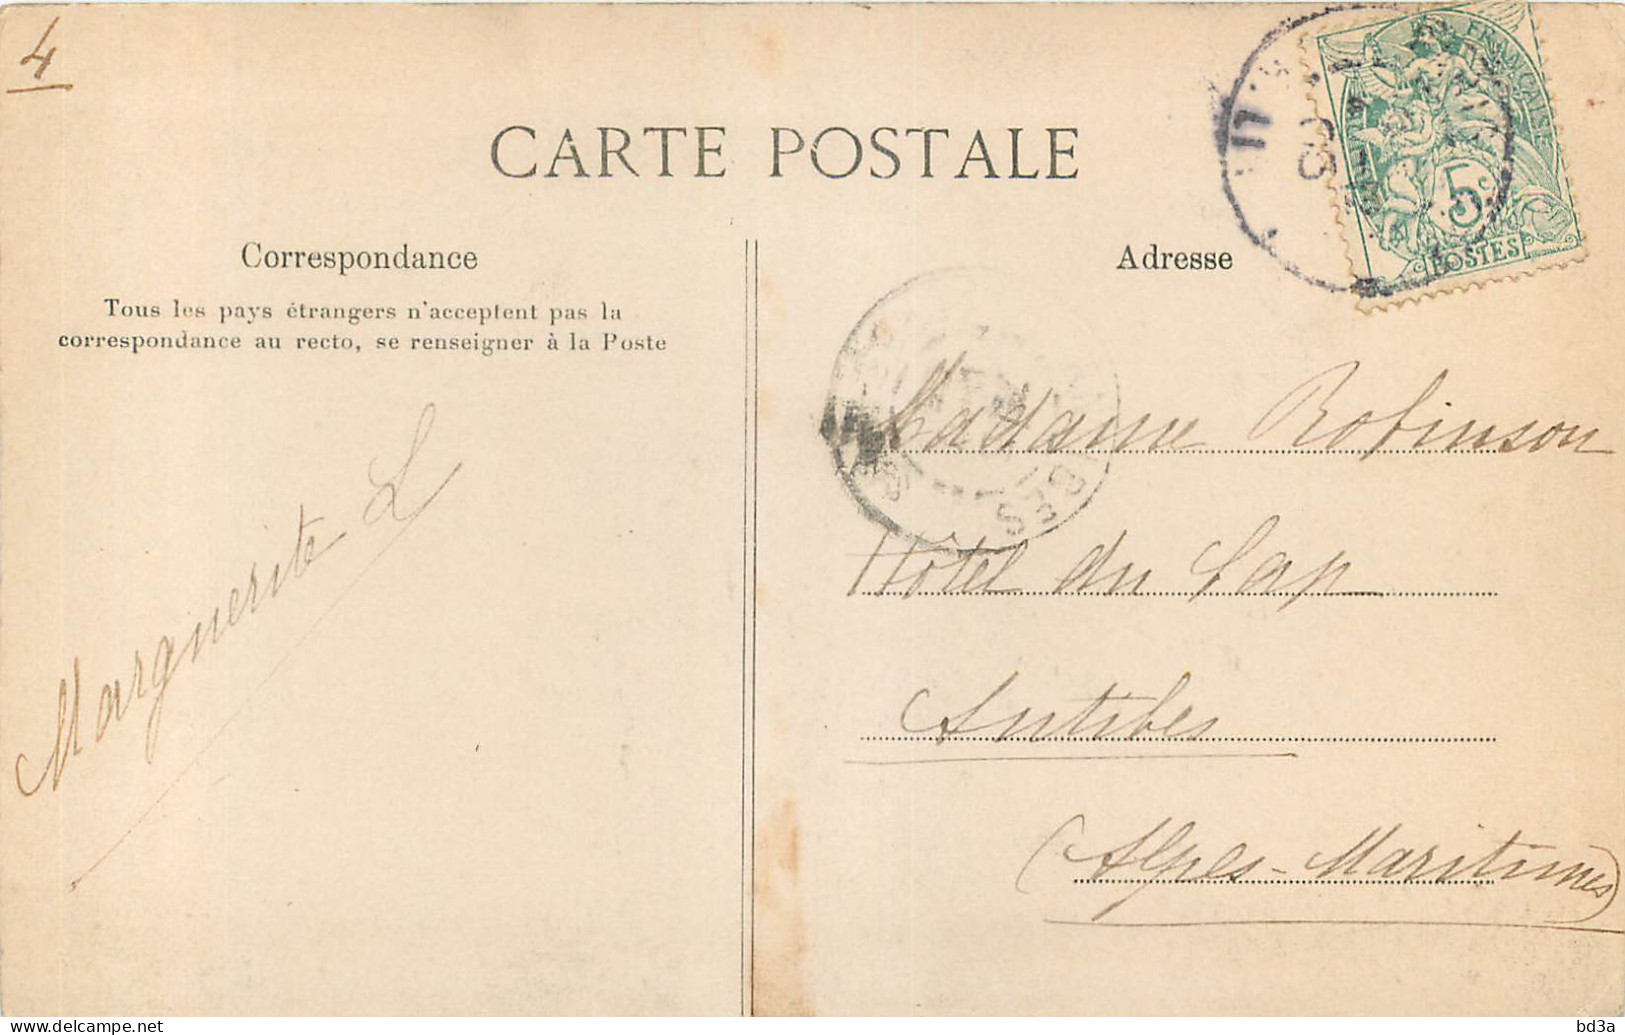 4
CARTE POSTALE
Correspondance
Tous les pays étrangers n'acceptent pas la
correspondance au recto, se renseigner à la Poste
Marguerite L
Adresse
FRANÇAISE
5c
POSTES
Madame Robinson
Hôtel du Cap
Antibes
(Alpes-Maritimes)
bd3a